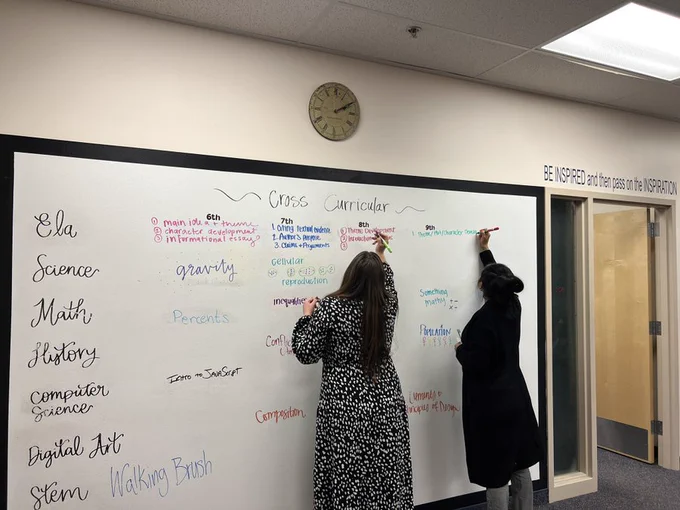 BE INSPIRED and then pass on the INSPIRATION
Cross Curricular
6th 7th 8th 9th
Ela
① main idea + theme
② character development
③ informational essay
1. citing textual evidence
2. Author's purpose
3. Claims + Arguments
① Theme Development
②
③
1. Theme
Science
gravity
cellular
reproduction
Math
Percents
Something
mathy
History
Computer
Science
Intro to JavaScript
Digital Art
Composition
of Design
Stem
Walking Brush